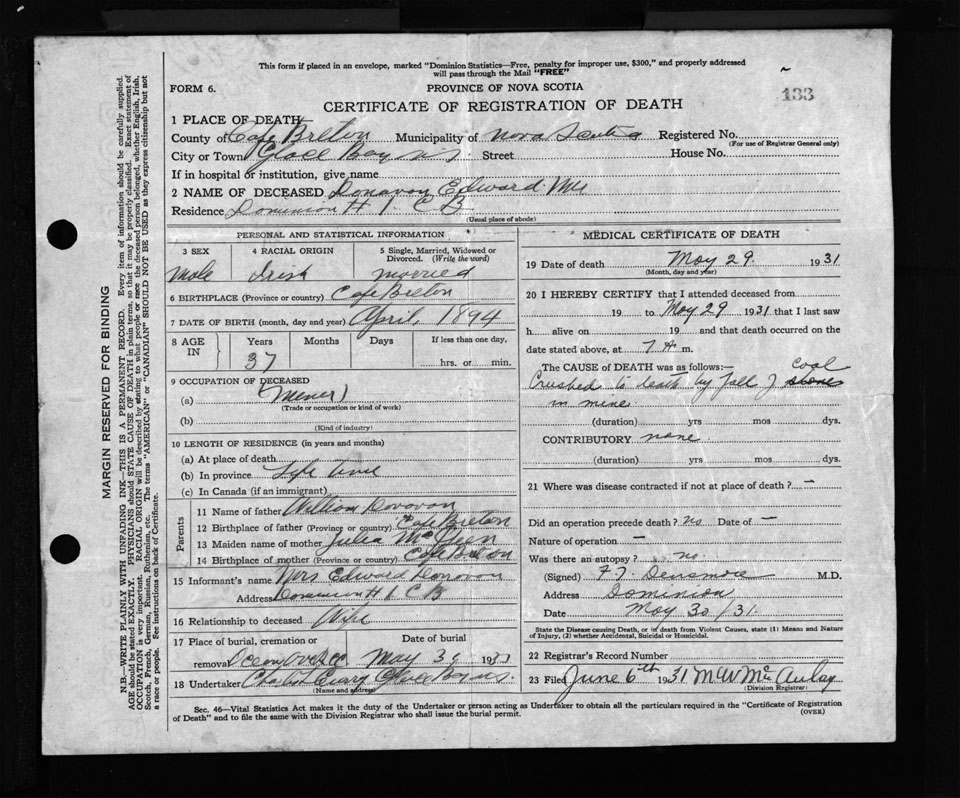 This form if placed in an envelope, marked "Dominion Statistics—Free, penalty for improper use, $300," and properly addressed
will pass through the Mail "FREE"
FORM 6.
PROVINCE OF NOVA SCOTIA
133
CERTIFICATE OF REGISTRATION OF DEATH
1 PLACE OF DEATH
County of Cape Breton Municipality of Nova Scotia Registered No.
(For use of Registrar General only)
City or Town Glace Bay N.S Street House No.
If in hospital or institution, give name
2 NAME OF DECEASED Donavon Edward Mr
Residence Dominion # 1 C B
(Usual place of abode)
PERSONAL AND STATISTICAL INFORMATION
3 SEX 4 RACIAL ORIGIN 5 Single, Married, Widowed or
Divorced. (Write the word)
Male Irish married
6 BIRTHPLACE (Province or country) Cape Breton
7 DATE OF BIRTH (month, day and year) April, 1894
8 AGE IN Years Months Days If less than one day,
37 hrs. or min.
9 OCCUPATION OF DECEASED
(a) (Miner)
(Trade or occupation or kind of work)
(b)
(Kind of industry)
10 LENGTH OF RESIDENCE (in years and months)
(a) At place of death
(b) In province Life time
(c) In Canada (if an immigrant)
Parents
11 Name of father William Donovon
12 Birthplace of father (Province or country) Cape Breton
13 Maiden name of mother Julia
14 Birthplace of mother (Province or country) Cape Breton
15 Informant's name Mrs Edward Donovon
Address Dominion # 1 C B
16 Relationship to deceased Wife
17 Place of burial, cremation or Date of burial
removal May 193
18 Undertaker Curry Glace Bay N.S.
(Name and address)
MEDICAL CERTIFICATE OF DEATH
19 Date of death May 29 1931
(Month, day and year)
20 I HEREBY CERTIFY that I attended deceased from
19 to May 29 1931 that I last saw
h alive on 19 and that death occurred on the
date stated above, at 7 A m.
The CAUSE OF DEATH was as follows:— coal
Crushed to death by fall of stone
in mine
(duration) yrs mos dys.
CONTRIBUTORY none
(duration) yrs mos dys.
21 Where was disease contracted if not at place of death? —
Did an operation precede death? no Date of —
Nature of operation —
Was there an autopsy? no.
(Signed) Densmore M.D.
Address Dominion
Date May 30/31.
State the Disease causing Death, or in death from Violent Causes, state (1) Means and Nature
of Injury, (2) whether Accidental, Suicidal or Homicidal.
22 Registrar's Record Number
23 Filed June 6th 1931 M W McAulay
(Division Registrar)
Sec. 46—Vital Statistics Act makes it the duty of the Undertaker or person acting as Undertaker to obtain all the particulars required in the "Certificate of Registration
of Death" and to file the same with the Division Registrar who shall issue the burial permit.
(OVER)
MARGIN RESERVED FOR BINDING
N.B.—WRITE PLAINLY WITH UNFADING INK—THIS IS A PERMANENT RECORD. Every item of information should be carefully supplied.
AGE should be stated EXACTLY. PHYSICIANS should STATE CAUSE OF DEATH in plain terms, so that it may be properly classified. Exact statement of
OCCUPATION is very important. RACIAL ORIGIN will be described by stating to what people or race the deceased person belonged, whether English, Irish,
Scotch, French, German, Russian, Ruthenian, etc. The terms "AMERICAN" or "CANADIAN" SHOULD NOT BE USED as they express citizenship but not
a race or people. See instructions on back of Certificate.